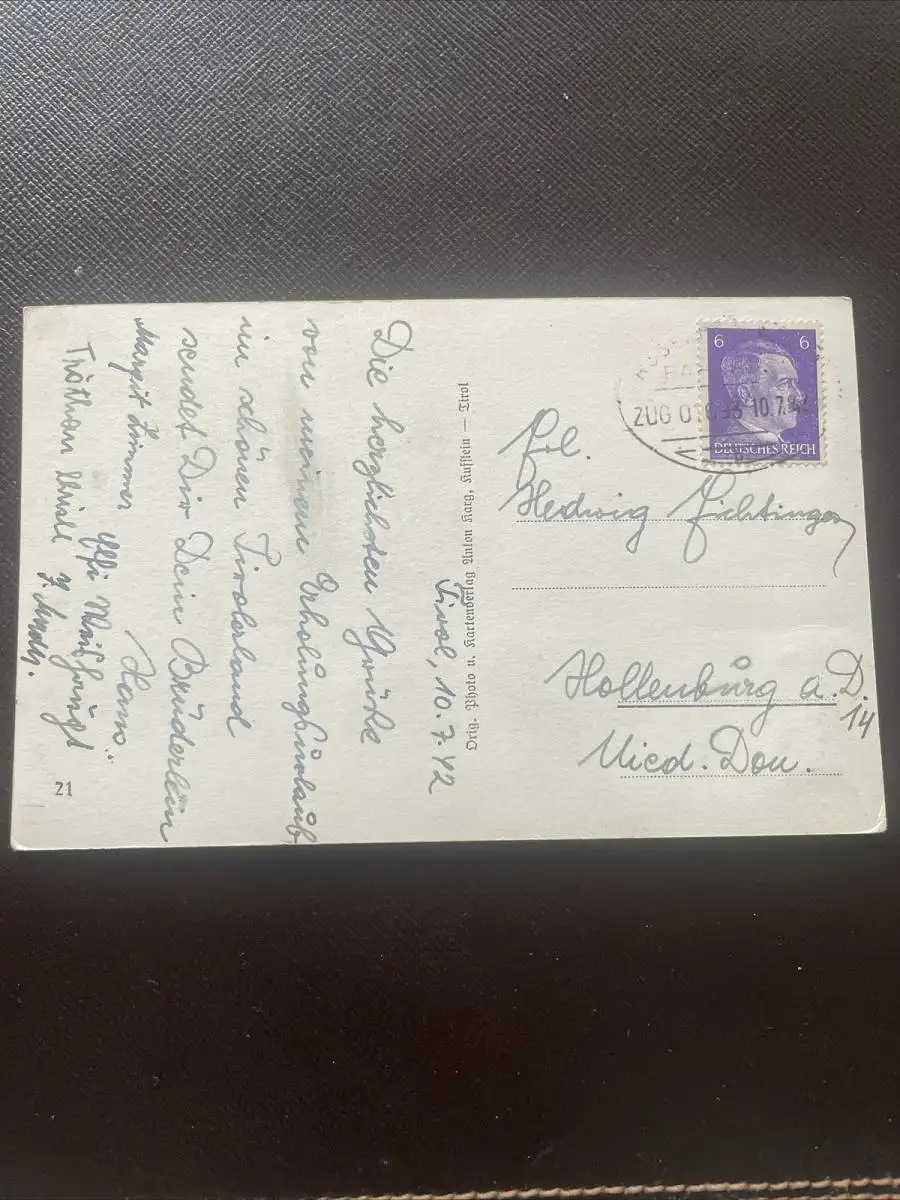 Tirol, 10.7.42
Die herzlichsten Grüße
von meinem Erholungsurlaub
im schönen Tirolerland
sendet Dir Dein Brüderlein
Hans.
Margit Zimmer
21
Orig. Photo u. Kartenverlag Anton Karg, Kufstein – Tirol
6 6
DEUTSCHES REICH
ZUG 10.7.42
Frl.
Hedwig Fichtinger
Hollenburg a. D.
14
Nied. Don.